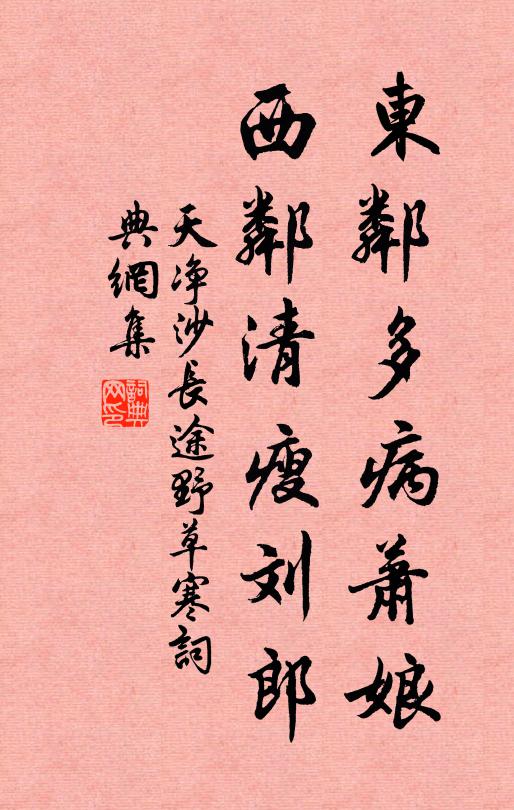 東鄰多病蕭娘
西鄰清瘦刘郎
天净沙長途野草寒詞
典網集
詞典网印